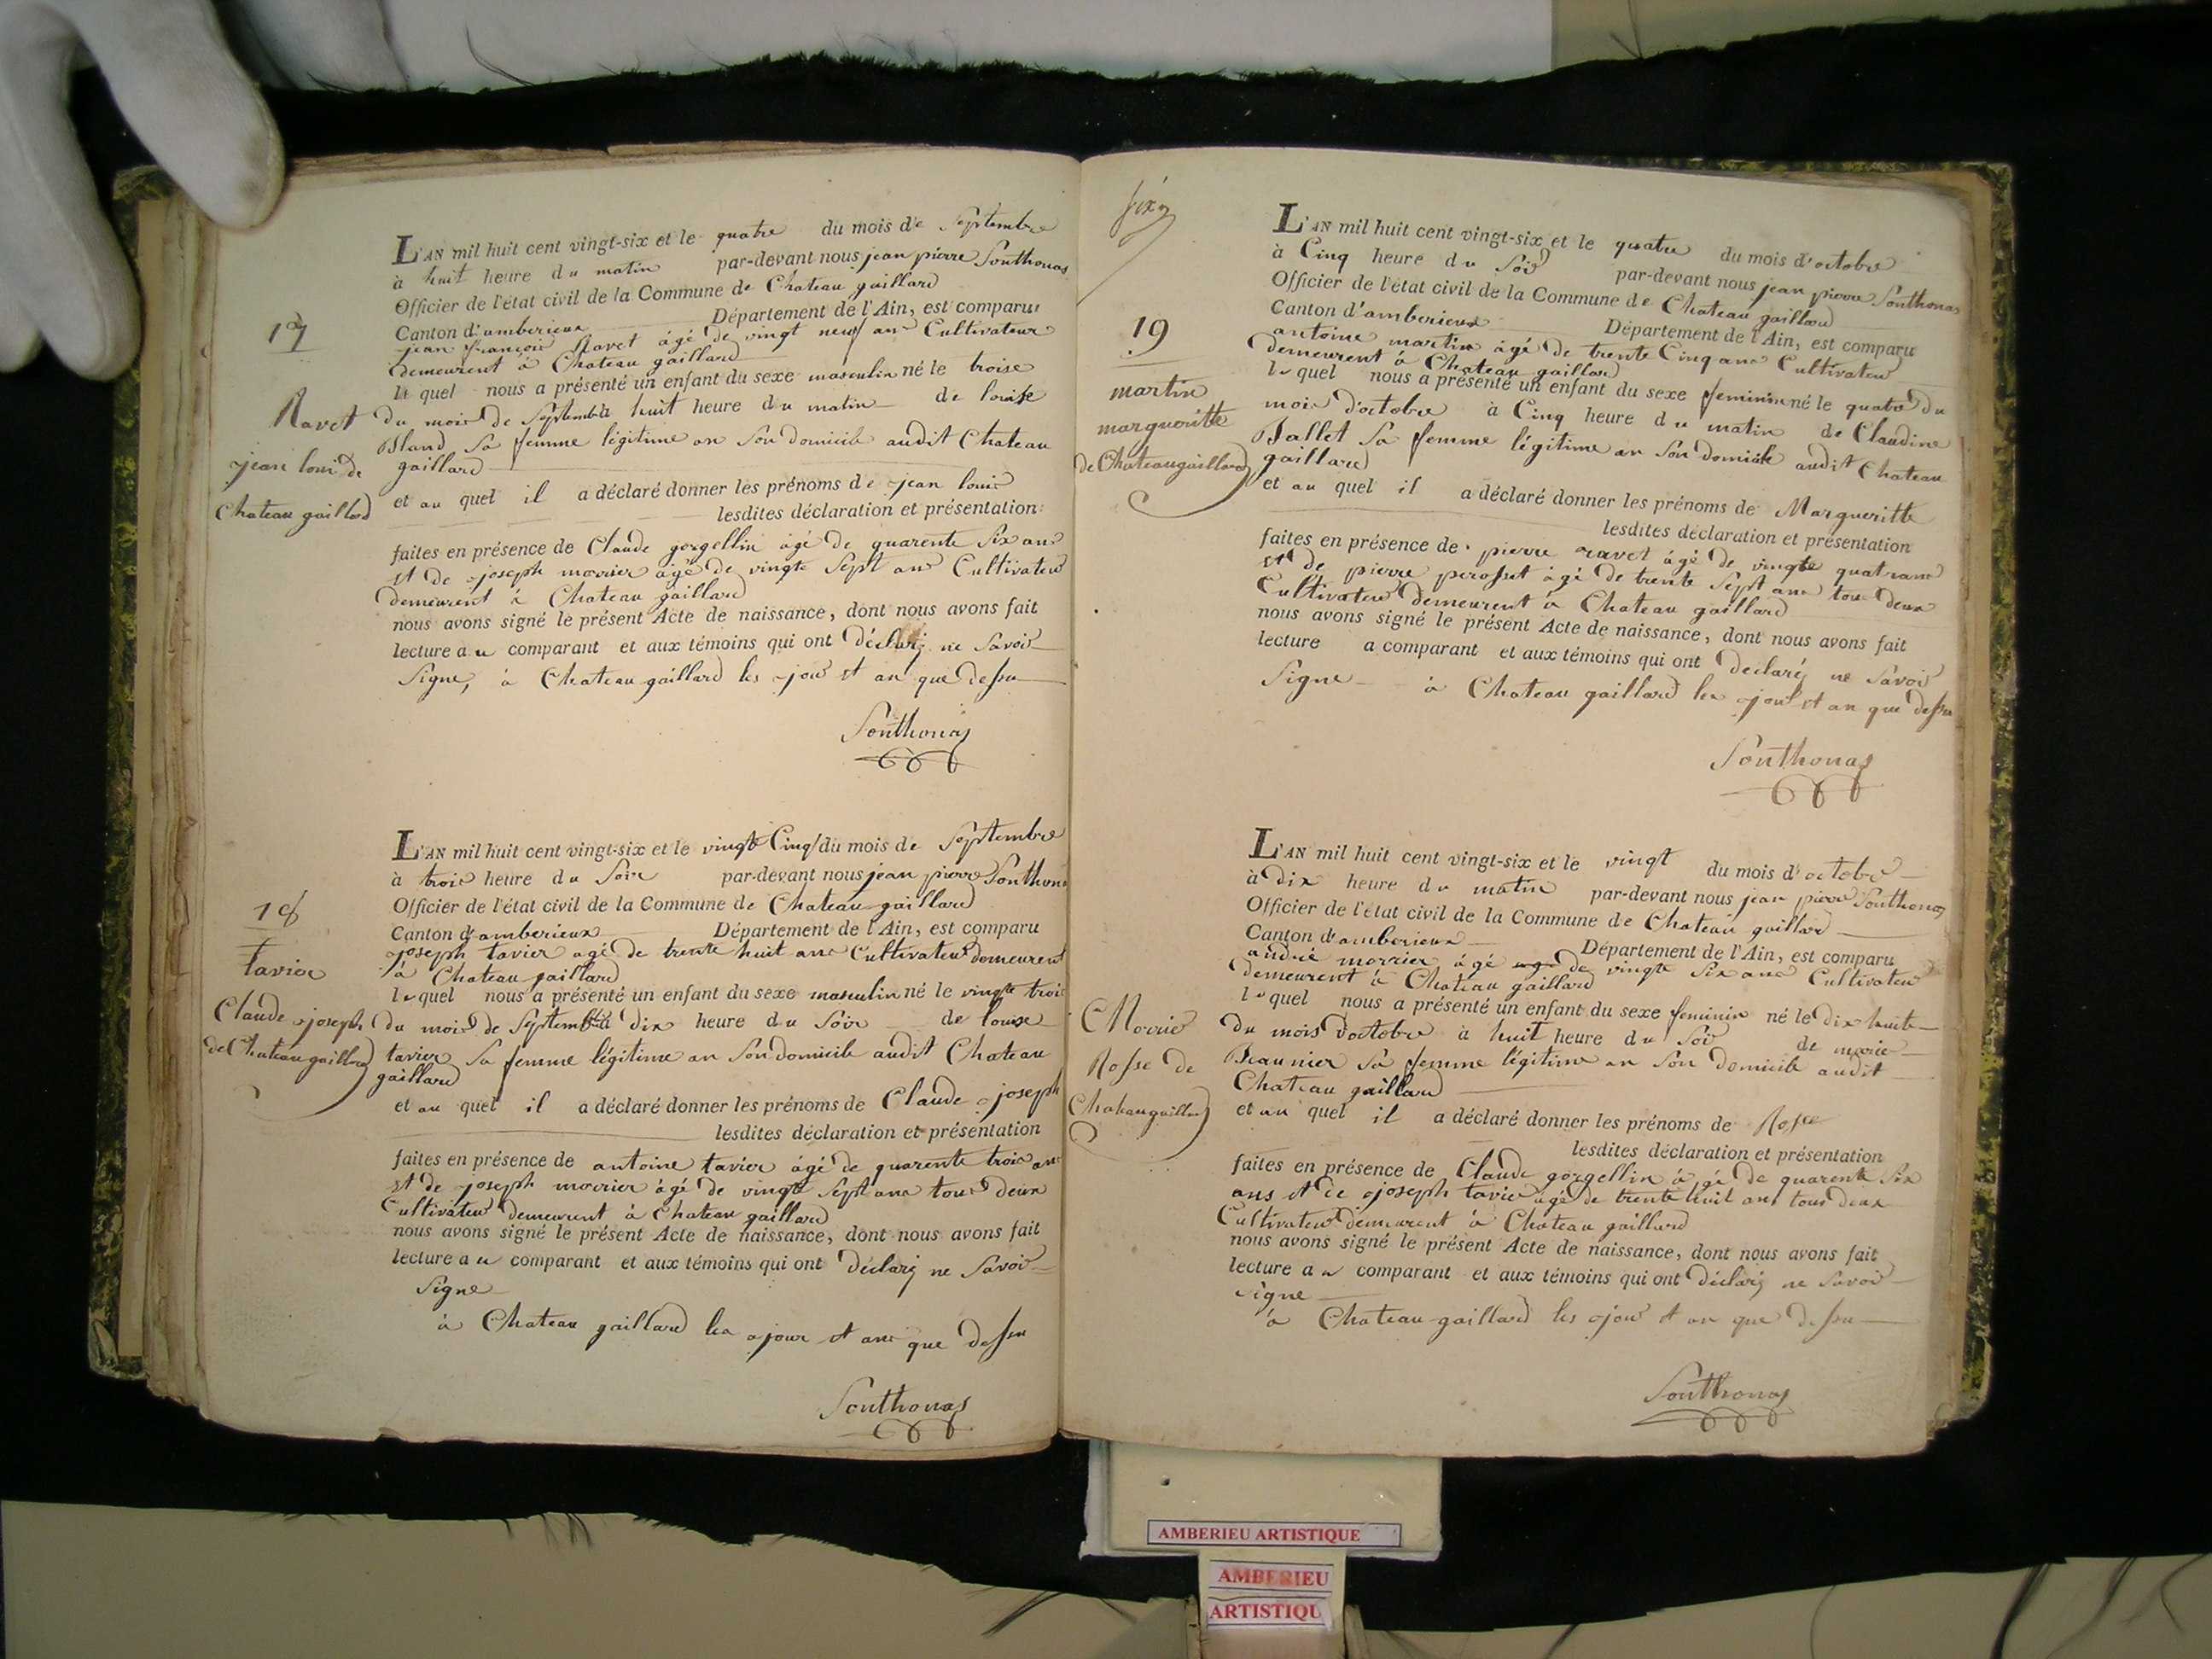 L'AN mil huit cent vingt-six et le quatre du mois de Septembre
à huit heure du matin par-devant nous jean pierre Sonthonas
Officier de l'état civil de la Commune de Chateau gaillard
Canton d'amberieux Département de l'Ain, est comparu
jean françois Ravet âgé de vingt neuf ans Cultivateur
demeurent à Chateau gaillard
le quel nous a présenté un enfant du sexe masculin né le troise
du mois de Septembre à huit heure du matin de louise
Bland Sa femme légitime an Son domicile audit Chateau
gaillard
et au quel il a déclaré donner les prénoms de jean louis
lesdites déclaration et présentation
faites en présence de Claude gorgellin âgé de quarente Six ans
et de joseph morrier âgé de vingte Sept ans Cultivateur
demeurent à Chateau gaillard
nous avons signé le présent Acte de naissance, dont nous avons fait
lecture au comparant et aux témoins qui ont déclaré ne Savoir
Signe, à Chateau gaillard les jour et an que dessu
Sonthonas
17
Ravet
jean loui de
Chateau gaillard
L'AN mil huit cent vingt-six et le vingte Cinq du mois de Septembre
à trois heure du Soir par-devant nous jean pierre Sonthonas
Officier de l'état civil de la Commune de Chateau gaillard
Canton d'amberieux Département de l'Ain, est comparu
joseph tavier agé de trente huit ans Cultivateur demeurent
à Chateau gaillard
le quel nous a présenté un enfant du sexe masculin né le vingte trois
du mois de Septembre à dix heure du Soir de louise
tavier Sa femme légitime an Son domicile audit Chateau
gaillard
et au quel il a déclaré donner les prénoms de Claude joseph
lesdites déclaration et présentation
faites en présence de antoine tavier âgé de quarente trois ans
et de joseph morrier âgé de vingte Sept ans tous deux
Cultivateur demeurent à Chateau gaillard
nous avons signé le présent Acte de naissance, dont nous avons fait
lecture au comparant et aux témoins qui ont déclaré ne Savoir
Signe
à Chateau gaillard les jour et ans que dessu
Sonthonas
18
tavier
Claude joseph
de Chateau gaillard
Six
L'AN mil huit cent vingt-six et le quatre du mois d'octobre
à Cinq heure du Soir par-devant nous jean pierre Sonthonas
Officier de l'état civil de la Commune de Chateau gaillard
Canton d'amberieux Département de l'Ain, est comparu
antoine martin âgé de trente Cinq ans Cultivateur
demeurent à Chateau gaillard
le quel nous a présenté un enfant du sexe feminin né le quatre du
mois d'octobre à Cinq heure du matin de Claudine
Ballet Sa femme légitime an Son domicile audit Chateau
gaillard
et au quel il a déclaré donner les prénoms de Margueritte
lesdites déclaration et présentation
faites en présence de pierre ravet âgé de vingte quatrans
et de pierre perosset âgé de trente Sept ans tou deux
Cultivateur demeurent à Chateau gaillard
nous avons signé le présent Acte de naissance, dont nous avons fait
lecture a comparant et aux témoins qui ont déclaré ne Savoir
Signe à Chateau gaillard les jour et an que dessu
Sonthonas
19
martin
margueritte
de Chateaugaillard
L'AN mil huit cent vingt-six et le vingt du mois d'octobre
à dix heure du matin par-devant nous jean pierre Sonthonas
Officier de l'état civil de la Commune de Chateau gaillard
Canton d'amberieux Département de l'Ain, est comparu
andré morrier âgé de vingte Six ans Cultivateur
demeurent à Chateau gaillard
le quel nous a présenté un enfant du sexe feminin né le dix huite
du mois d'octobre à huit heure du Soir de marie
Beaunier Sa femme légitime an Son domicile audit
Chateau gaillard
et au quel il a déclaré donner les prénoms de Rosse
lesdites déclaration et présentation
faites en présence de Claude gorgellin âgé de quarente Six
ans et de joseph tavier agé de trente huit ans tous deux
Cultivateur demeurent à Chateau gaillard
nous avons signé le présent Acte de naissance, dont nous avons fait
lecture au comparant et aux témoins qui ont déclaré ne Savoir
Signe
à Chateau gaillard les jour et an que dessu
Sonthonas
Morrier
Rosse de
Chateaugaillard
AMBERIEU ARTISTIQUE
AMBERIEU
ARTISTIQU